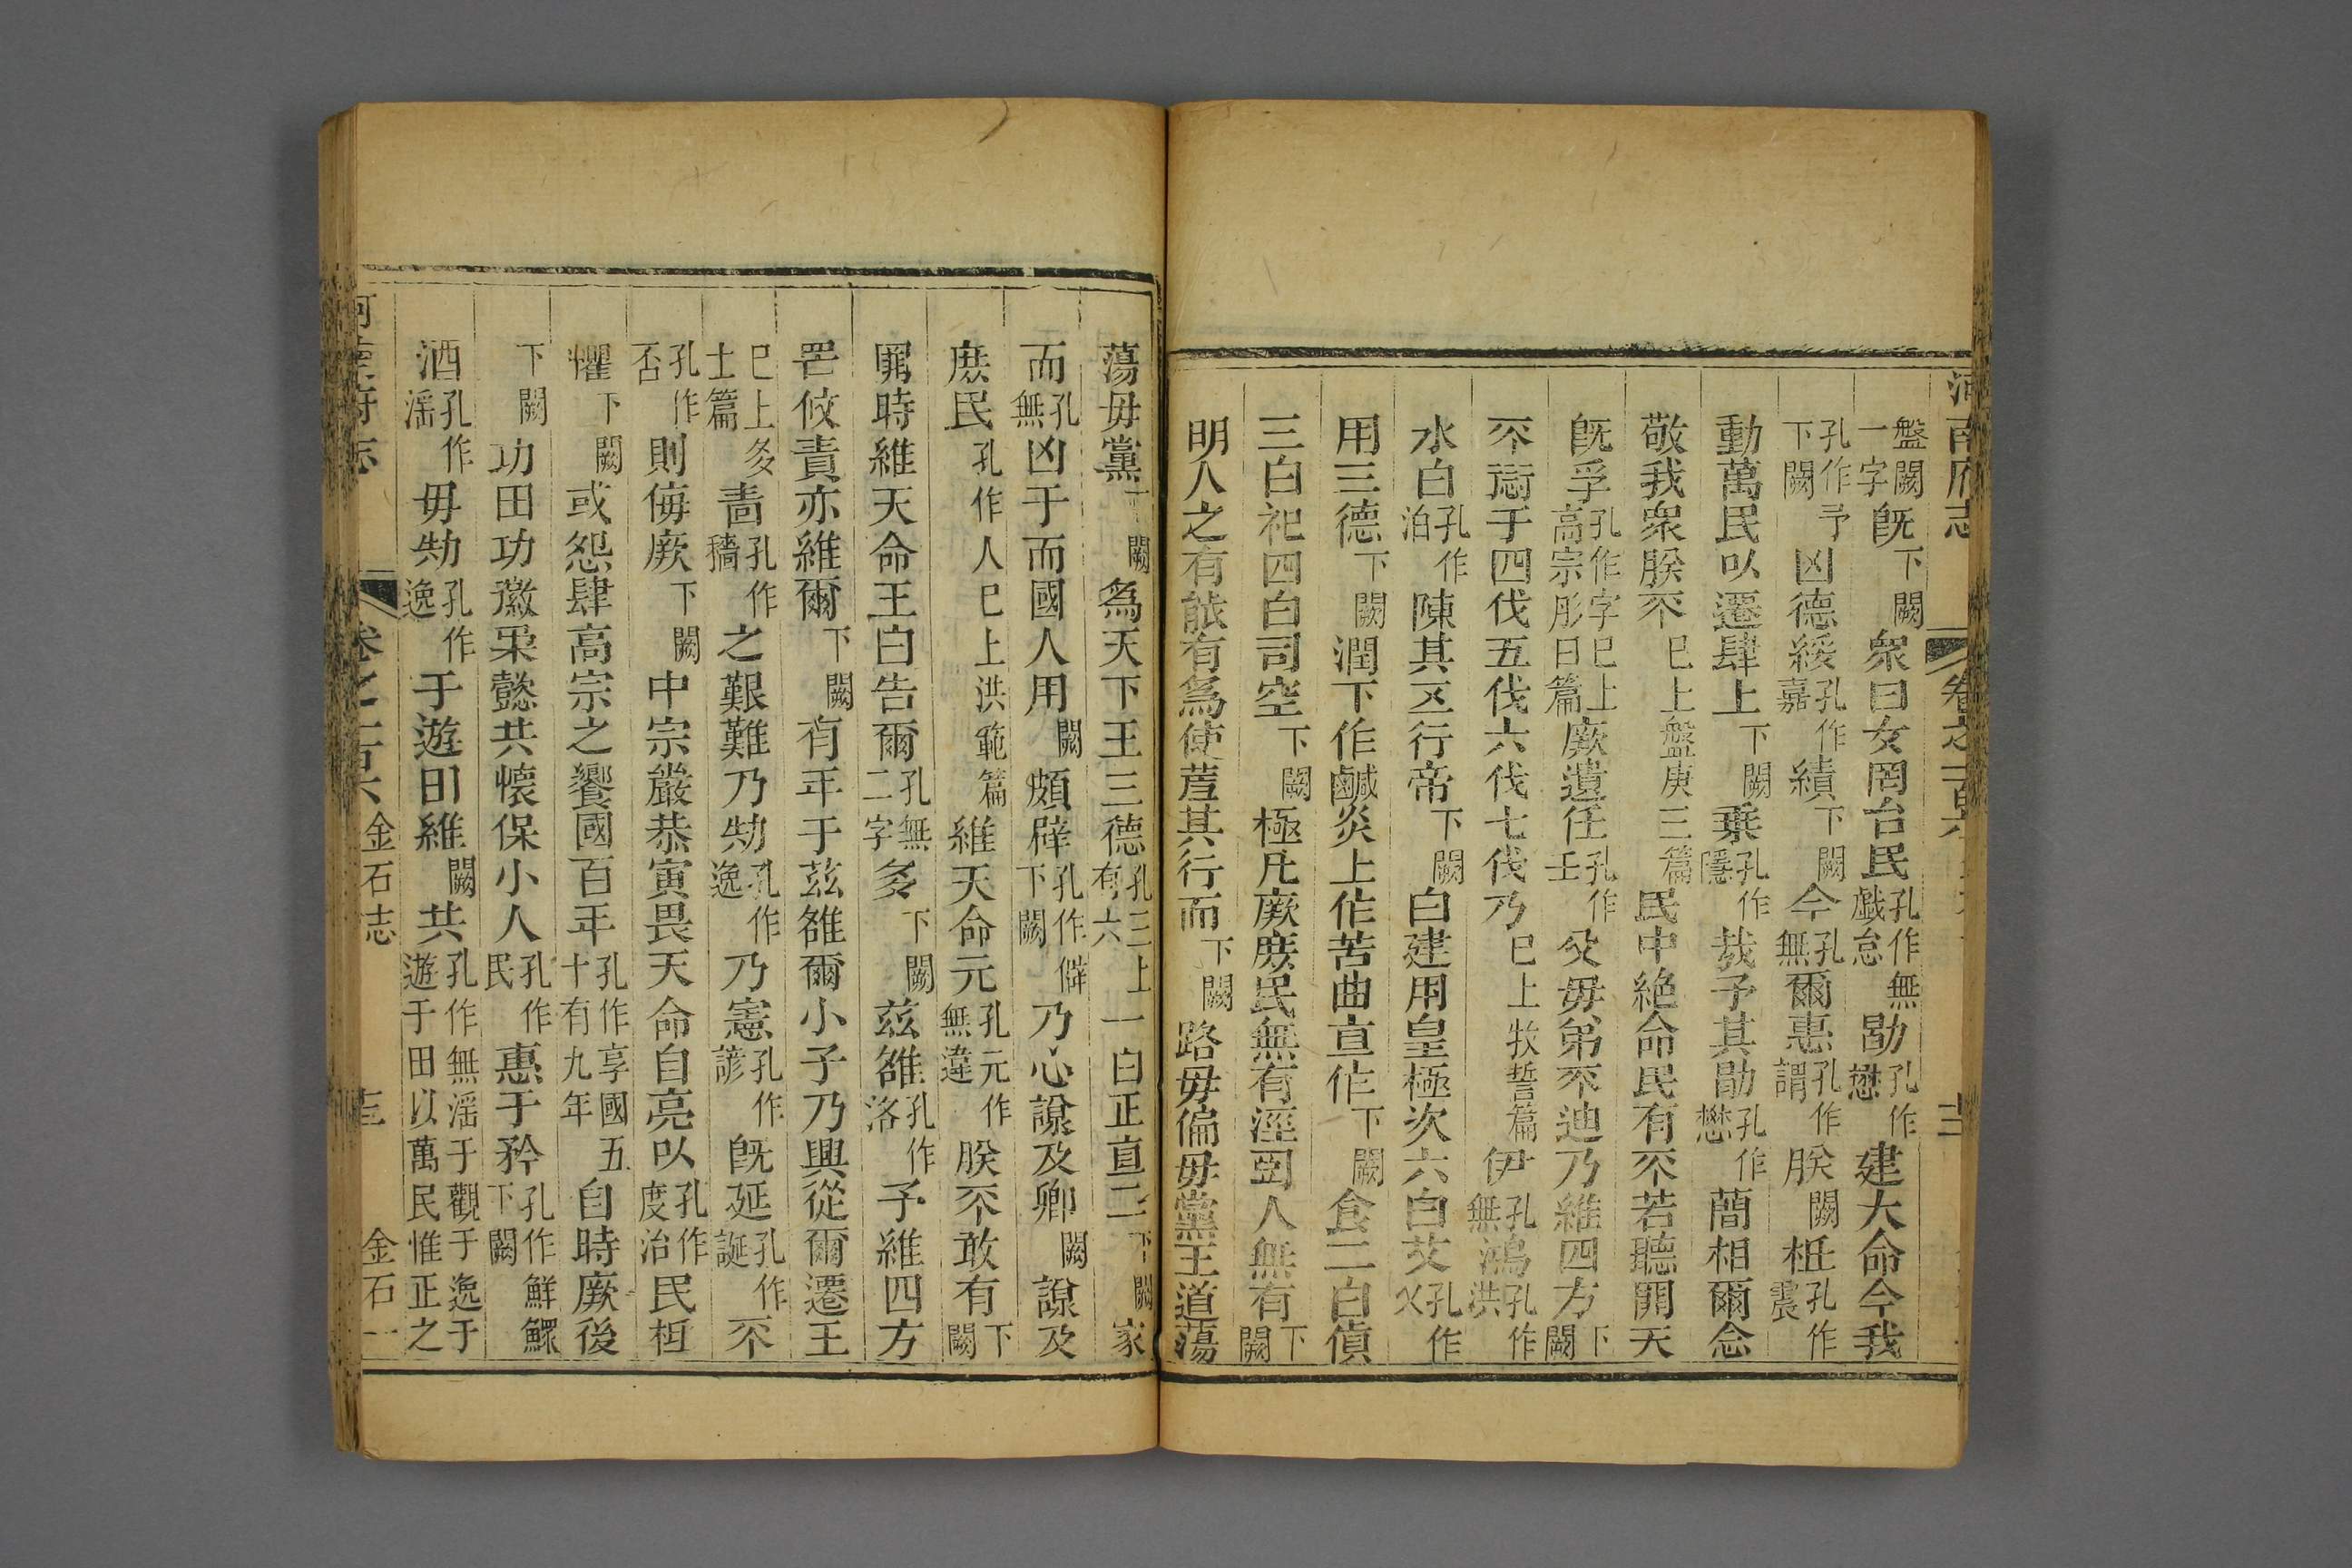 河南府志 卷之一百六
盤闕一字既下闕衆曰女罔台民孔作無戲怠勖孔作懋建大命今我
孔作予下闕凶德綏孔作嘉績下闕今孔無爾惠孔作謂朕闕柢孔作震
動萬民以遷肆上下闕乗孔作隱㢤予其勖孔作懋簡相爾念
敬我衆朕不已上盤庚三篇民中絶命民有不若聽開天
既孚孔作字已上高宗肜日篇厥遺任孔作壬父毋弟不迪乃維四方下闕
不愆于四伐五伐六伐七伐乃已上牧誓篇伊孔無鴻孔作洪
水曰孔作汩陳其五行帝下闕曰建用皇極次六曰艾孔作乂
用三德下闕潤下作鹹炎上作苦曲直作下闕食二曰貨
三曰祀四曰司空下闕極凡厥庶民無有淫罔人無有下闕
明人之有能有爲使羞其行而下闕路毋偏毋黨王道蕩
蕩毋黨下闕爲天下王三德孔三上有六一曰正直二下闕家
而孔無凶于而國人用闕頗辟孔作僻下闕乃心謀及卿闕謀及
庶民孔作人已上洪範篇維天命元孔元作無違朕不敢有下闕
罪時維天命王曰告爾孔無二字多下闕茲雒孔作洛予維四方
罔攸責亦維爾下闕有年于茲雒爾小子乃興從爾遷王
已上多士篇嗇孔作穡之艱難乃劮孔作逸乃憲孔作諺既延孔作誕不
孔作否則侮厥下闕中宗嚴恭寅畏天命自亮以孔作度治民袛
懼下闕或怨肆高宗之饗國百年孔作享國五十有九年自時厥後
下闕功田功徽柔懿共懷保小人孔作民惠于矜孔作鮮鰥下闕
酒孔作淫毋劮孔作逸于遊田維闕共孔作無淫于觀于逸于遊于田以萬民惟正之
金石志 十三 金石一